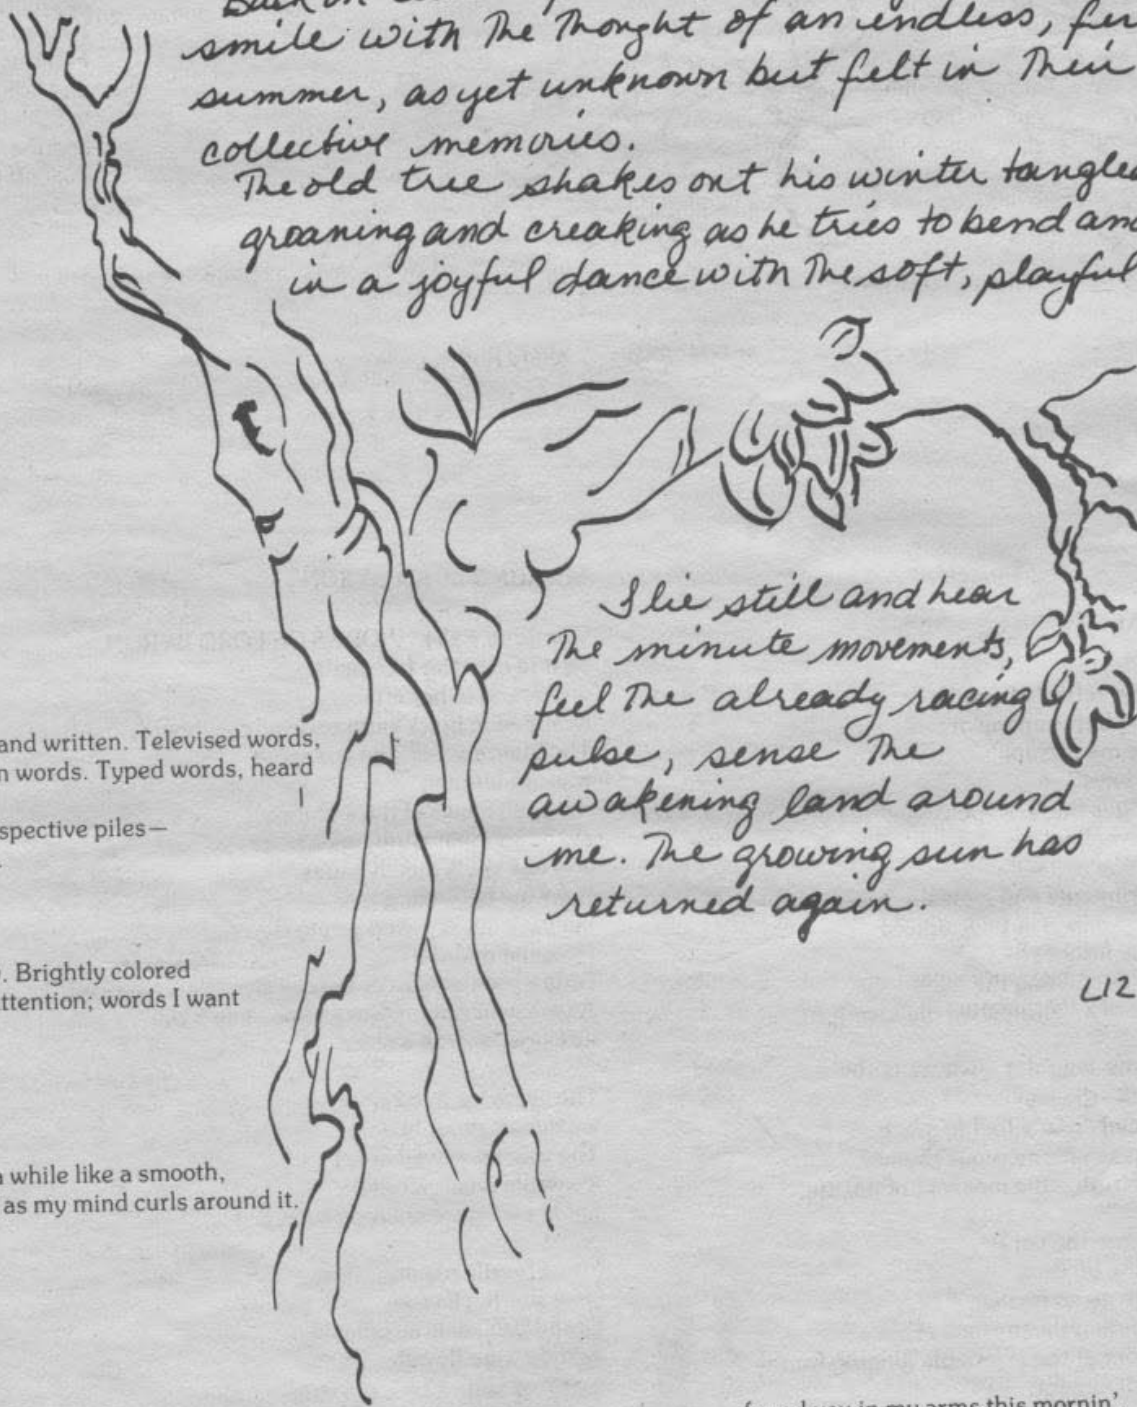 smile with the thought of an endless,
summer, as yet unknown but felt in their
collective memories.
The old tree shakes out his winter
groaning and creaking as he tries to bend and
in a joyful dance with the soft, playful
I lie still and hear
the minute movements,
feel the already racing
pulse, sense the
awakening land around
me. The growing sun has
returned again.
L12
and written. Televised words,
n words. Typed words, heard
spective piles—
. Brightly colored
ttention; words I want
while like a smooth,
as my mind curls around it.
in my arms this mornin'